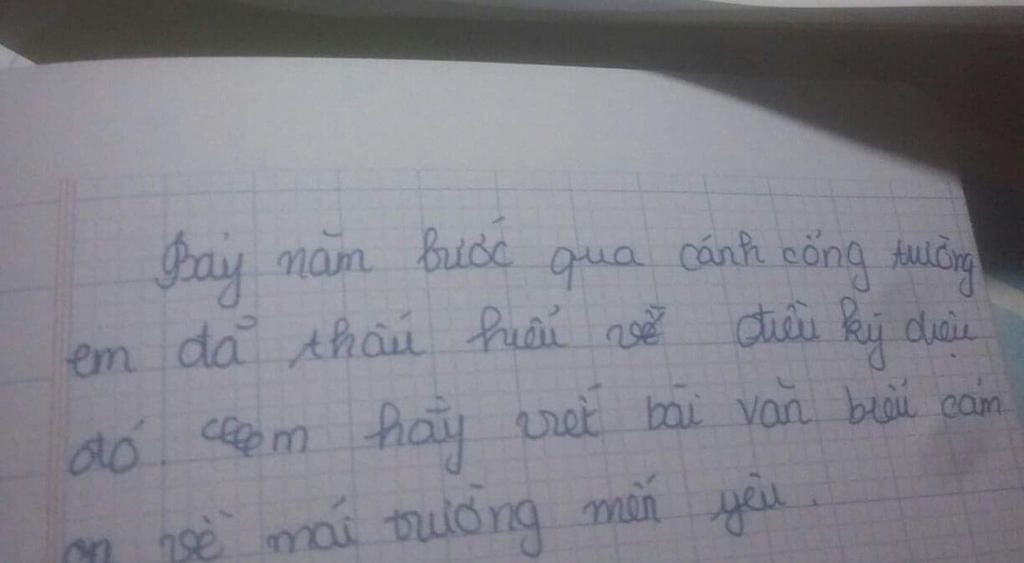 Bảy năm bước qua cánh cổng trường
em đã thấu hiểu về điều kỳ diệu
đó. em hãy viết bài văn biểu cảm
về mái trường mến yêu.